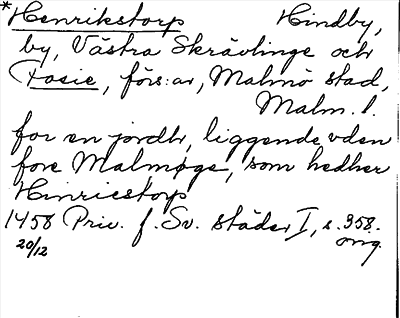 *Henrikstorp Hindby,
by, Västra Skrävlinge och
Fosie, förs:ar, Malmö stad,
Malm. l.
for en jordh, liggende vden
fore Malmøge, som hedher
Hinricstorp
1458 Priv. f. Sv. städer I, s. 958.
20/12 orig.